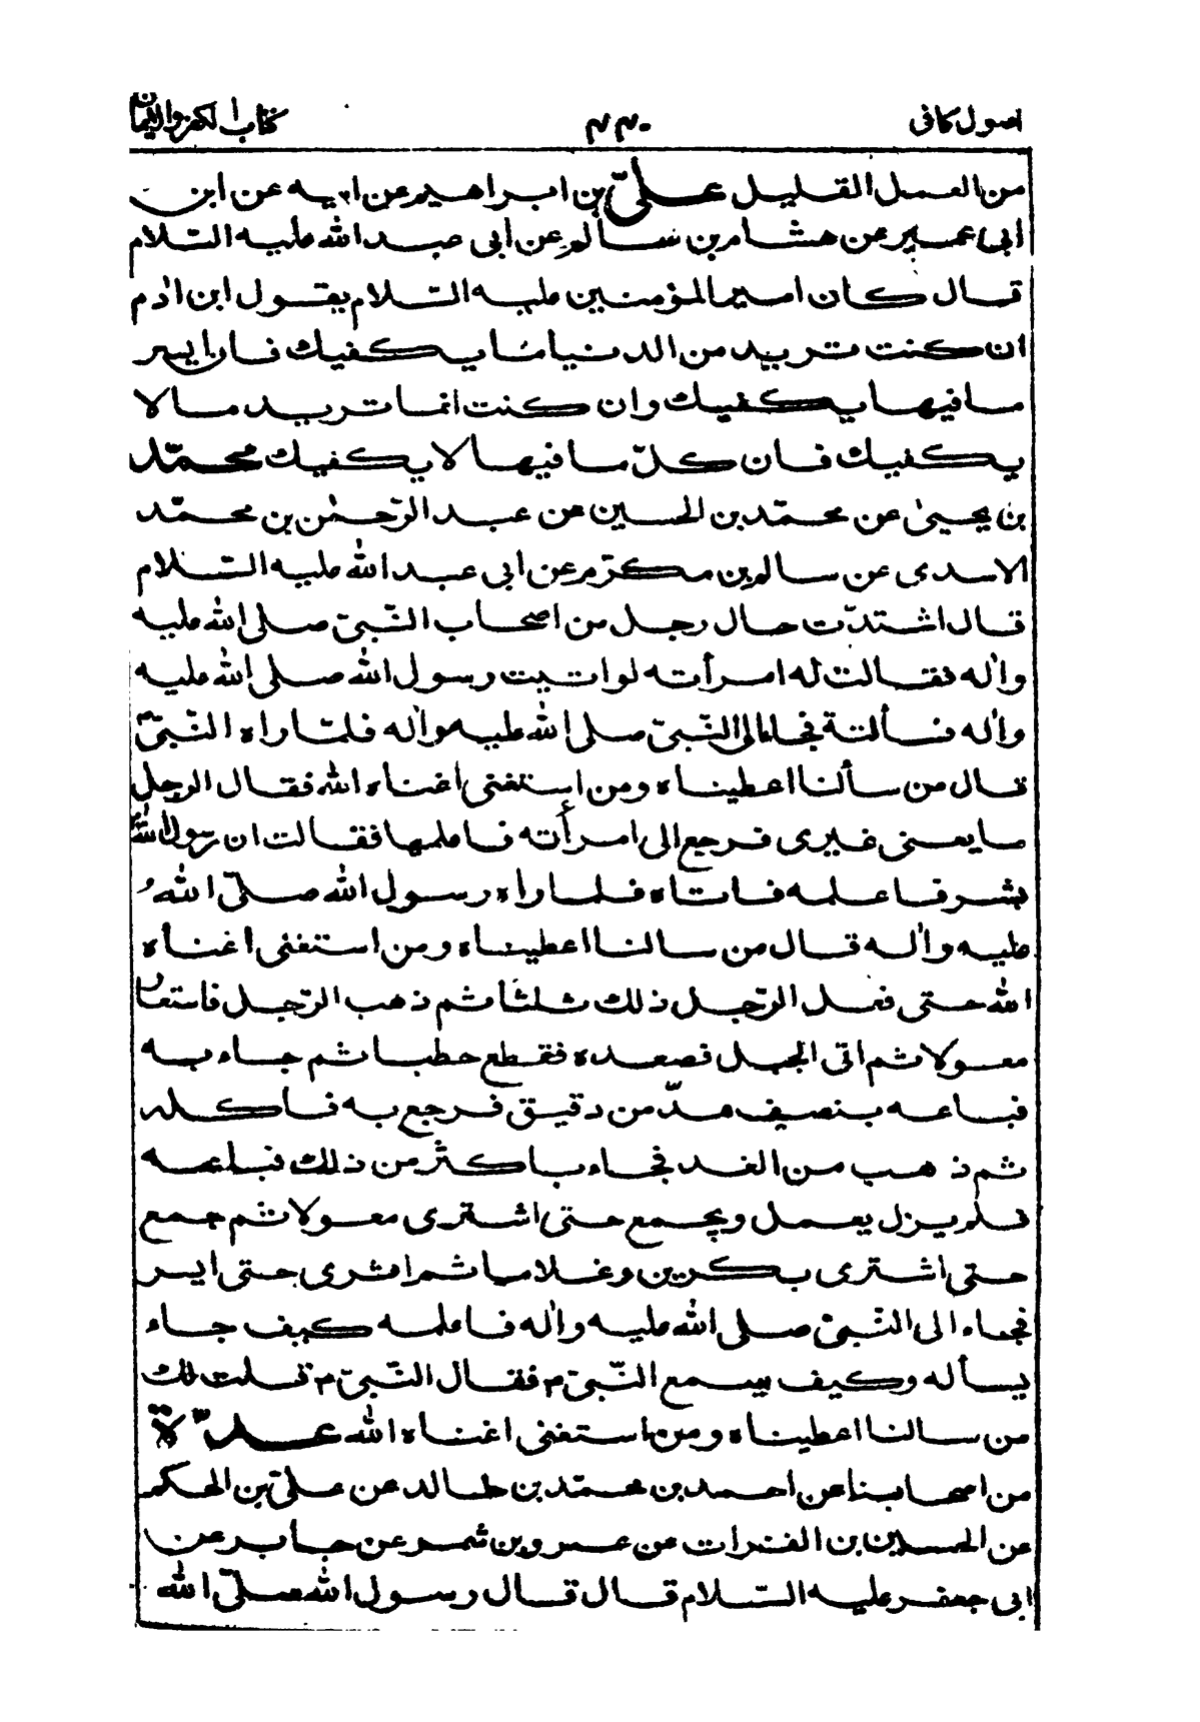 اصول كافى ٤٣٠ كتاب الكفر والايمان
من العمل القليل علىّ بن ابراهيم عن ابيه عن ابن
ابى عمير عن هشام بن سالم عن أبى عبد الله عليه السّلام
قال كان امير المؤمنين عليه السّلام يقول ابن ادم
ان كنت تريد من الدنيا ما يكفيك فان ايسر
ما فيها يكفيك وان كنت انما تريد ما لا
يكفيك فان كلّ ما فيها لا يكفيك محمّد
بن يحيىٰ عن محمّد بن الحسين عن عبد الرّحمٰن بن محمّد
الاسدى عن سالم بن مكرّم عن ابى عبد الله عليه السّلام
قال اشتدّت حال رجل من اصحاب النّبىّ صلى الله عليه
واٰله فقالت له امرأته لو اتيت رسول الله صلى الله عليه
واٰله فسألته فجاء الى النّبىّ صلى الله عليه واٰله فلمّا راه النّبىّ
قال من سألنا اعطيناه ومن استغنى اغناه الله فقال الرجل
ما يعنى غيرى فرجع الى امرأته فاعلمها فقالت ان رسول الله
بشر فاعلمه فاتاه فلما راه رسول الله صلّى الله
عليه واٰله قال من سالنا اعطيناه ومن استغنى اغناه
الله حتى فعل الرّجل ذلك ثلثًا ثم ذهب الرّجل فاستعار
معولا ثم اتى الجبل فصعده فقطع حطبا ثم جاء به
فباعه بنصف مدّ من دقيق فرجع به فأكله
ثم ذهب من الغد فجاء باكثر من ذلك فباعه
فلم يزل يعمل ويجمع حتى اشترى معولا ثم جمع
حتى اشترى بكرين وغلاما ثم اثرى حتى ايسر
فجاء الى النّبىّ صلى الله عليه واٰله فاعلمه كيف جاء
يسأله وكيف سمع النّبىّ م فقال النّبىّ م قلت لك
من سالنا اعطيناه ومن استغنى اغناه الله عدّة
من اصحابنا عن احمد بن محمّد بن خالد عن علىّ بن الحكم
عن الحسين بن الفرات عن عمرو بن شمر عن جابر عن
ابى جعفر عليه السّلام قال قال رسول الله صلّى الله